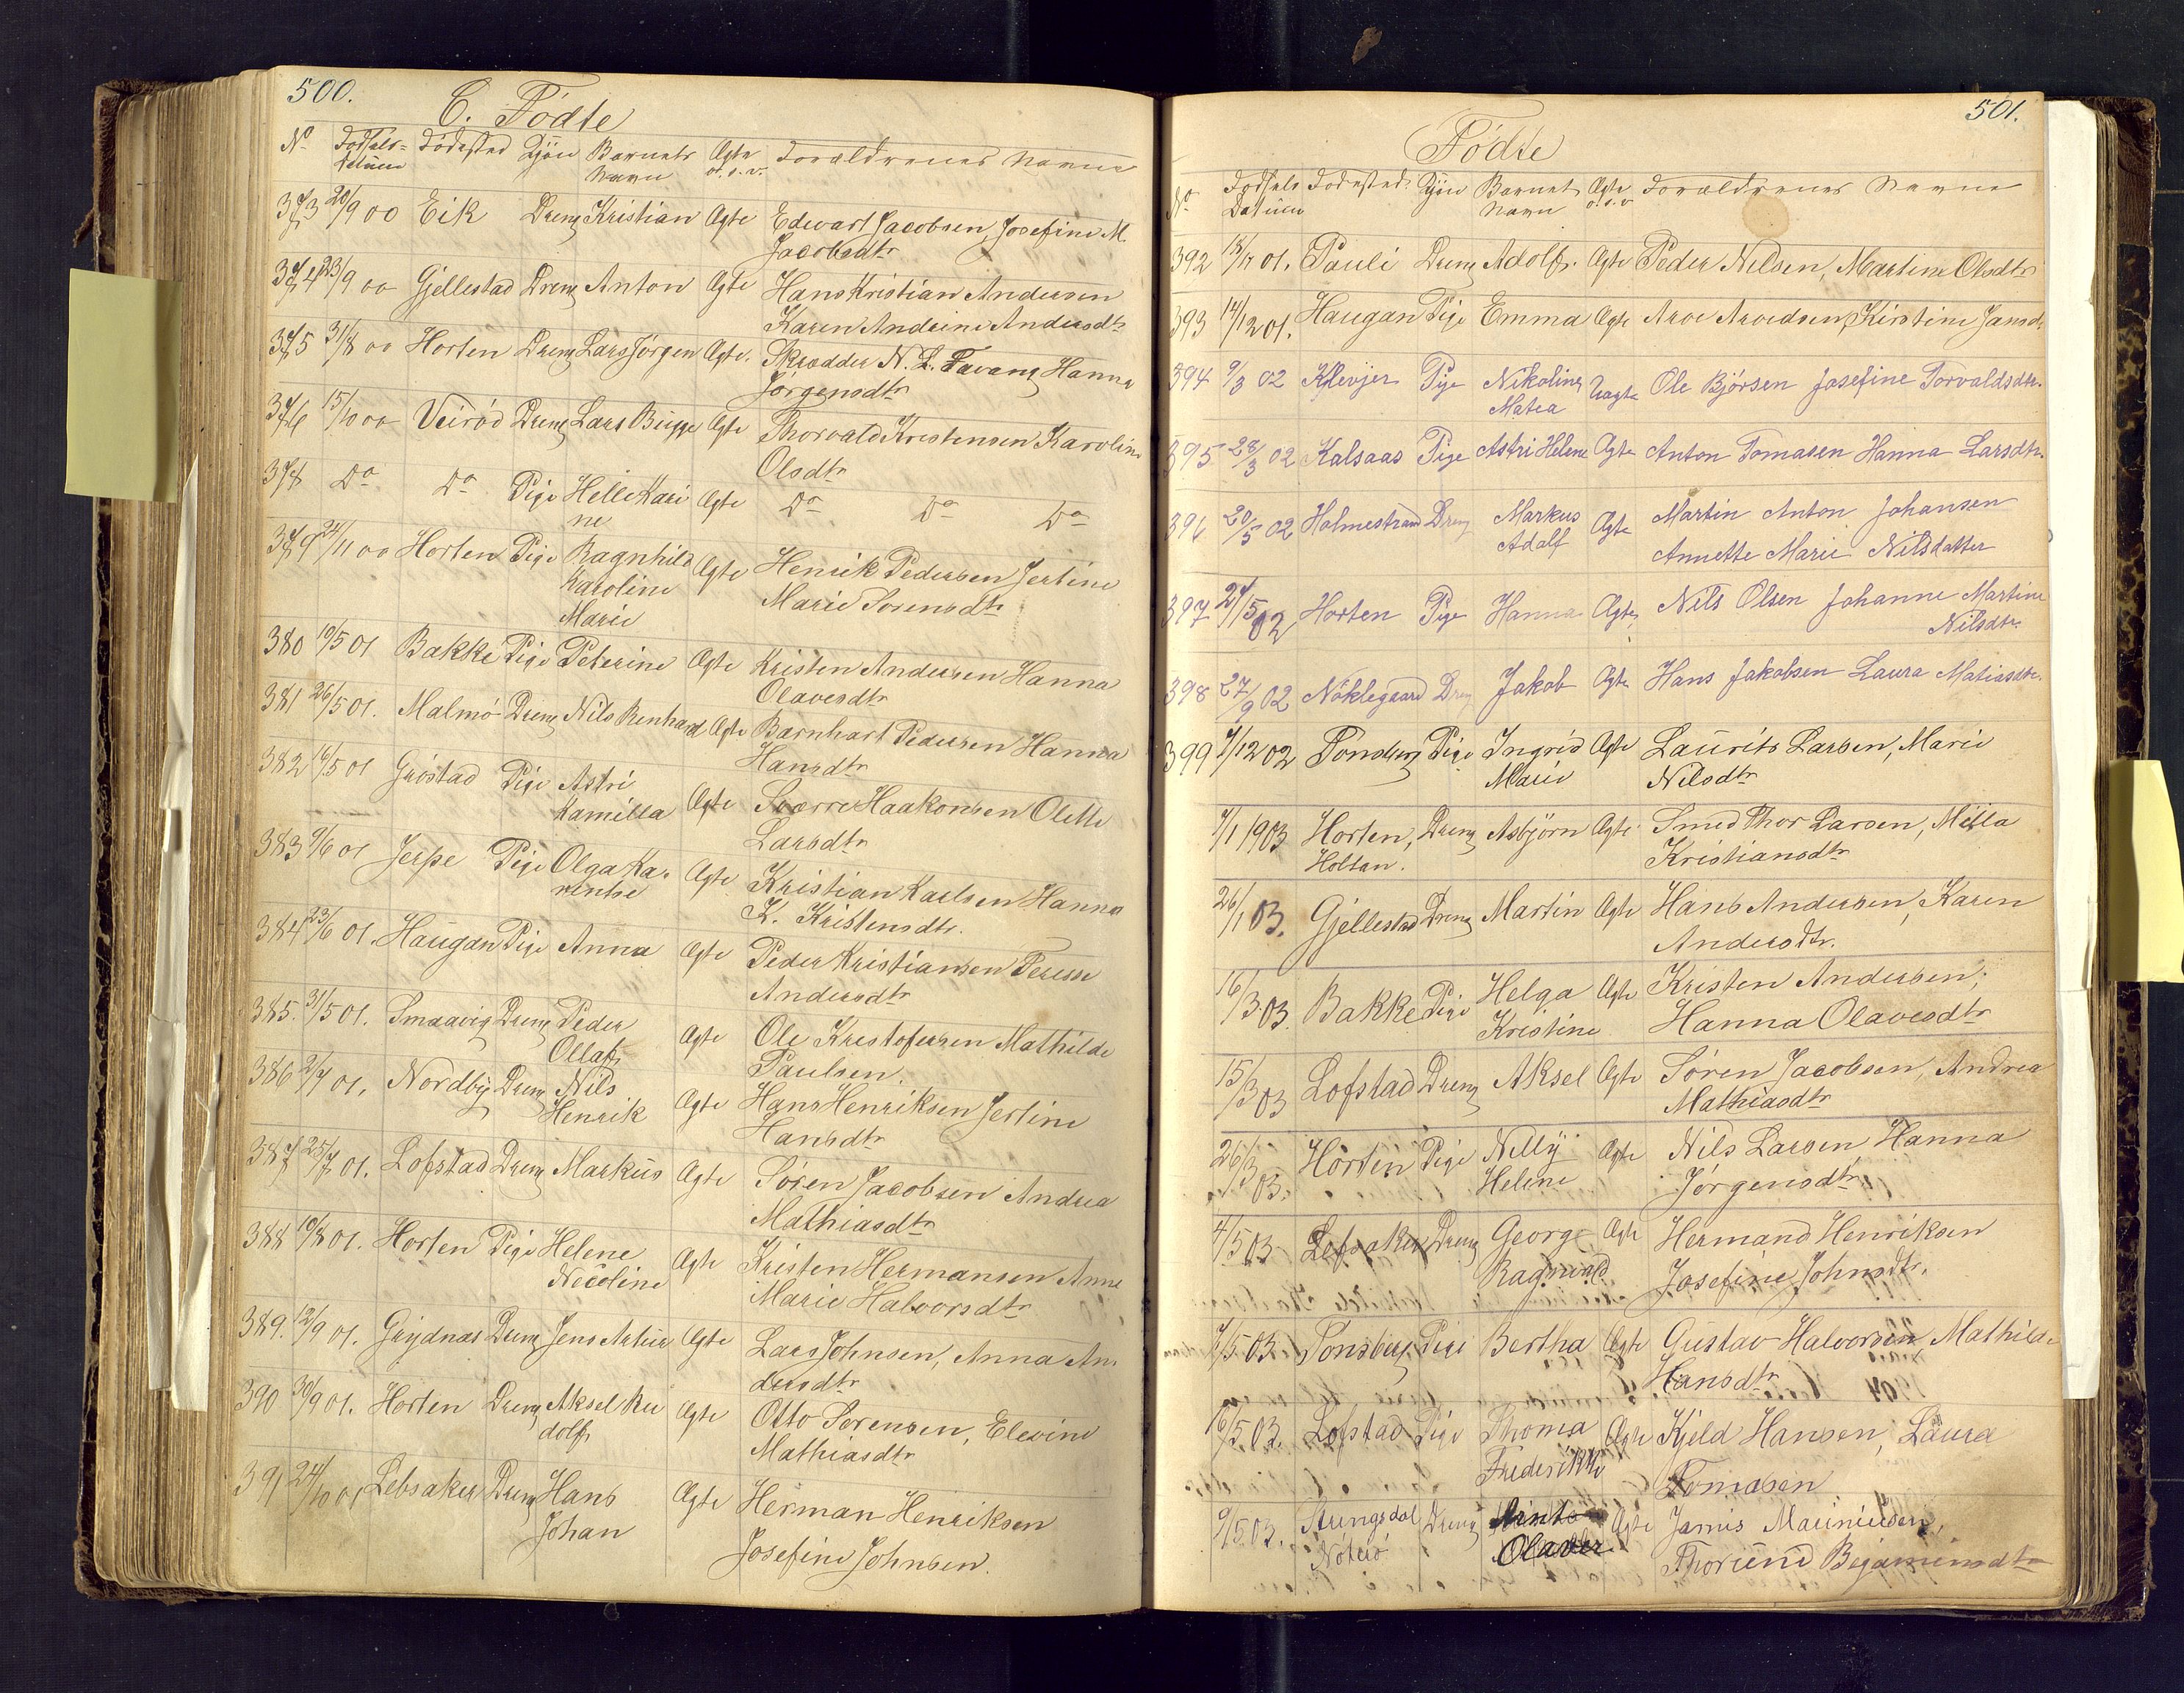 500.
C. Födte
No Födsels= Datum Födested Kjön Barnets Navn Ægte o.s.v. Forældrenes Navne
373 20/9 00 Eik Dreng Kristian Ægte Edvart Jacobsen, Josefine M.
Jacobsdtr
374 23/9 00 Gjellestad Dreng Anton Ægte Hans Kristian Andersen
Karen Andrine Andersdtr
375 31/8 00 Horten Dreng Lars Jörgen Ægte. Skrædder N. L. Favang Hanna
Jörgensdtr
376 15/10 00 Veiröd Dreng Lars Bugge Ægte Thorvald Kristensen Karoline
Olsdtr
378 Do Do Pige Helle Kari Ægte Do Do Do
ne
379 24/11 00 Horten Pige Ragnhild Ægte Henrik Pedersen Jertine
Karoline Marie Sorensdtr
Marie
380 10/5 01 Bakke Pige Peterine Ægte Kristen Andersen Hanna
Olavesdtr
381 26/5 01. Malmö Dreng Nils Renhard Ægte Barnhart Pedersen Hanna
Hansdtr
382 16/5 01 Gröstad Pige Astri Ægte Sværre Haakonsen Olette
Kamilla Larsdtr
383 9/6 01 Jerpe Pige Olga Ka. Ægte Kristian Karlsen Hanna
rentse K. Kristensdtr.
384 23/6 01. Haugan Pige Anna Ægte Peder Kristiansen Terese
Andersdtr
385. 31/5 01. Smaavig Dreng Peder Ægte Ole Kristofersen Mathilde
Ollaf Paulsen.
386 2/7 01. Nordby Dreng Nils Ægte Hans Henriksen Jertine
Henrik Hansdtr
387 25/7 01. Lofstad Dreng Markus Ægte Sören Jacobsen Andrea
Mathiasdtr
388 10/8 01. Horten Pige Helene Ægte Kristen Hermansen Anne
Necoline Marie Halvorsdtr
389. 12/9 01. Grydnæs Dreng Jens Artur Ægte Lars Johnsen, Anna An.
dersdtr
390 30/9 01. Horten Dreng Aksel Ru Ægte Otto Sorensen, Elevine
dolf Mathiasdtr
391 24/10 01 Lebsaker Dreng Hans Ægte Herman Henriksen
Johan Josefine Johnsen.
501.
Födte
No Födsels Datum Födested. Kjön Barnets Navn Ægte o.s.v Forældrenes Navne
392 18/11 01. Pauli Dreng Adolf. Ægte Peder Nilsen, Martine Olsdtr
393 14/12 01. Haugan Pige Emma Ægte Arve Arvedsen, Kirstine Jansdr
394 9/3 02 Klevjer Pige Nikoline Uægte Ole Bjørsen Josefine Torvaldsdtr.
Matea
395 28/3 02 Kalsaas Pige Astri Helene Ægte Anton Tomasen Hanna Larsdtr.
396 20/5 02 Holmestrand Dreng Markus Ægte Martin Anton Johansen
Adolf Annette Marie Nilsdatter
397 24/5 02 Horten Pige Hanna Ægte Nils Olsen Johanne Martine
Nilsdtr
398 27/9 02 Nöklegaard Dreng Jakob Ægte Hans Jakobsen Laura Matiasdtr.
399 7/12 02 Tonsberg Pige Ingrid Ægte Laurits Larsen, Marie
Marie Nilsdtr
7/1 1903 Horten, Dreng Asbjörn Ægte Smed Thor Larsen, Milla
Holtan. Kristiansdtr
26/1 03. Gjellestad Dreng Martin Ægte Hans Andersen, Karen
Andersdtr.
16/3 03. Bakke Pige Helga Ægte Kristen Andersen,
Kristine Hanna Olavesdtr
15/3 03 Lofstad Dreng Aksel Ægte Sören Jacobsen, Andrea
Mathiasdtr
26/3 03. Horten Pige Nelly Ægte Nils Larsen, Hanna
Helene Jörgensdtr
4/5 03 Lebsaker Dreng George Ægte Hermand Henriksen
Ragnvald Josefine Johnsdtr.
7/5 03 Tonsberg Pige Bertha Ægte Gustav Halvorsen, Mathilde
Hansdtr
16/5 03. Lofstad Pige Thoma Ægte Kjeld Hansen, Laura
Frederikke Tomasen
9/5 03. Dreng Ægte
Noterö Olaver